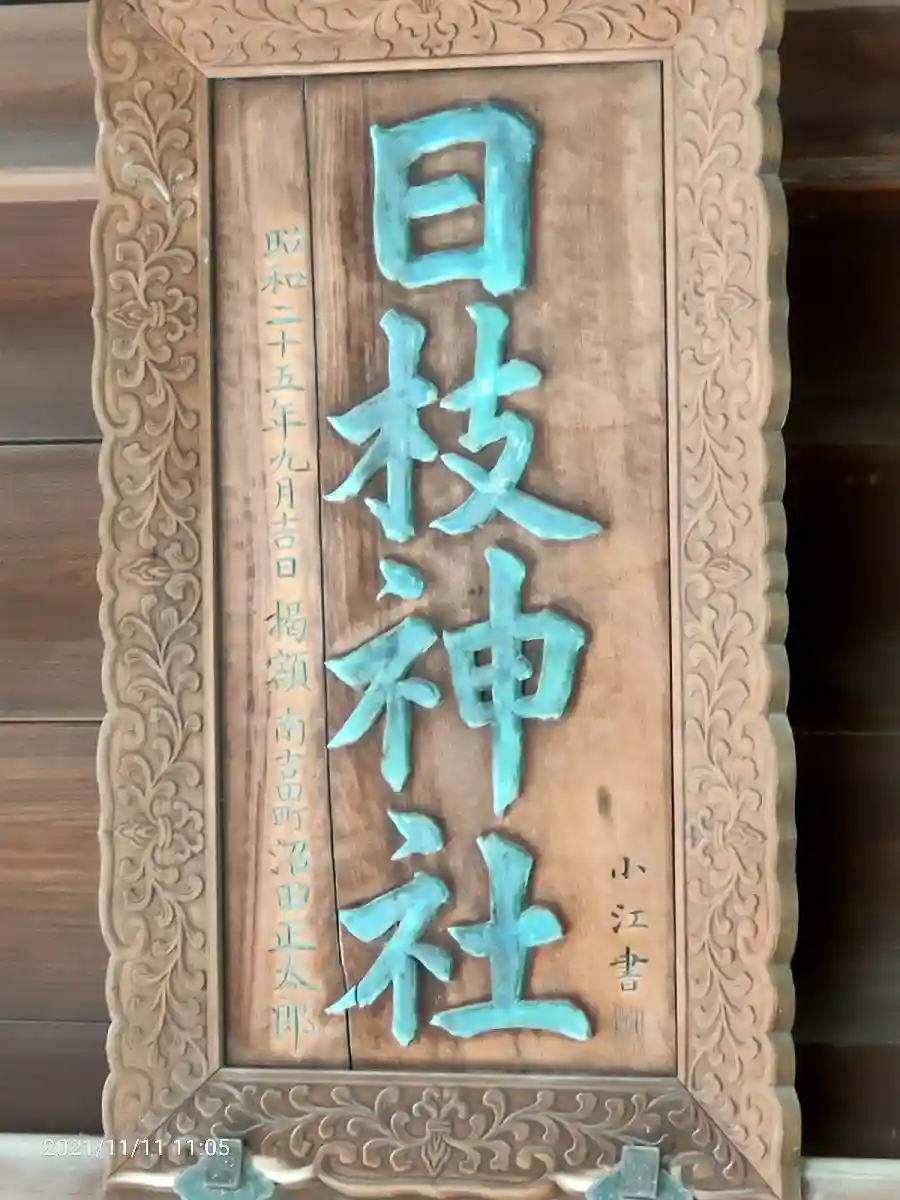 小江書
日枝神社
昭和二十五年九月吉日 揭額 南吉田町 沼田正太郎
2021/11/11 11:05